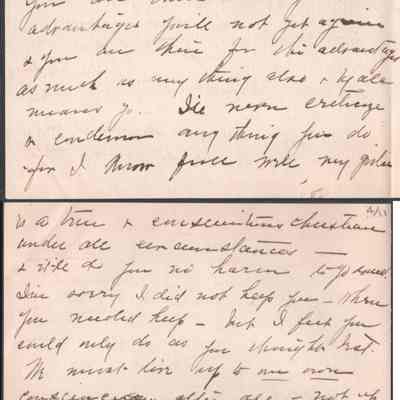 advantages you'll not get again
& you are there for the advantages
as much as any thing else & by all
means go. I'll never criticize
or condemn any thing you do
for I know full well my
is a true & conscientious christian
under all circumstances —
& it'll do you no harm to go
I'm sorry I did not help you — when
you needed help — but I feel you
could only do as you thought best.
We must live up to our own
after all — not up